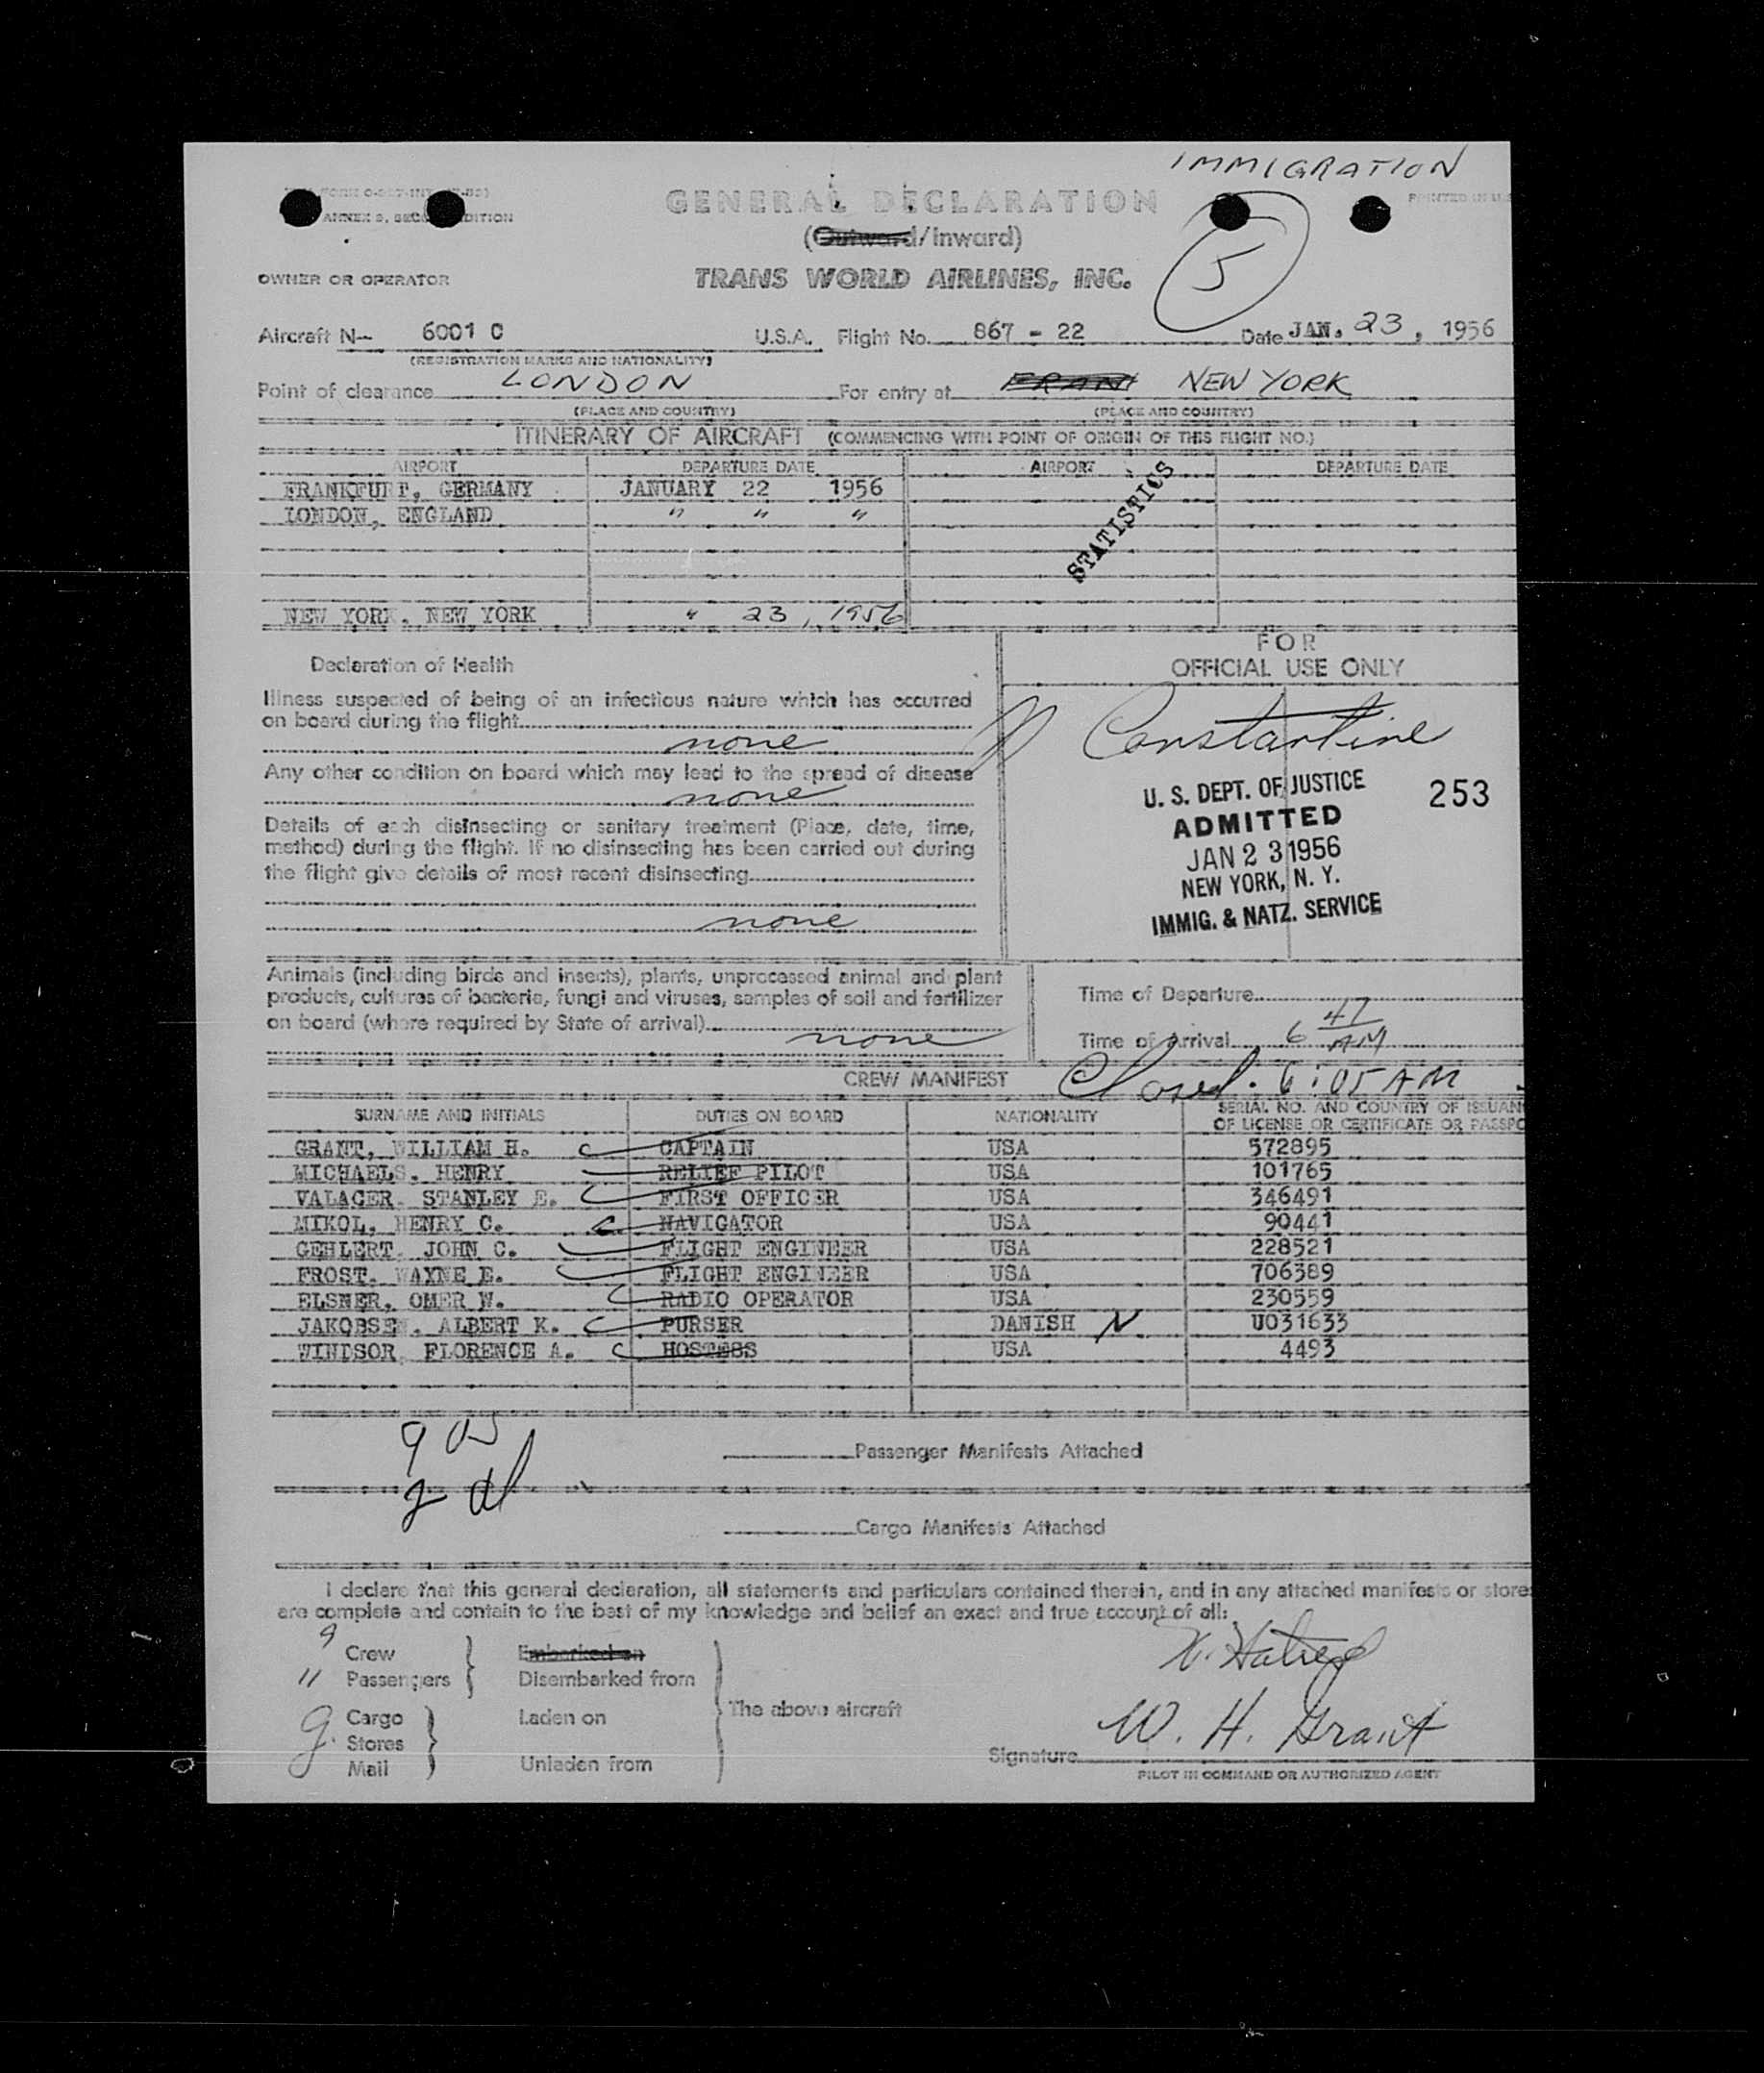 IMMIGRATION
ANNEX 9, SECOND EDITION
PRINTED IN U.S.
GENERAL DECLARATION
(Outward/Inward)
5
OWNER OR OPERATOR
TRANS WORLD AIRLINES, INC.
Aircraft N-- 6001 C U.S.A. Flight No. 867 - 22 Date JAN. 23, 1956
(REGISTRATION MARKS AND NATIONALITY)
Point of clearance LONDON For entry at FRAN NEW YORK
(PLACE AND COUNTRY) (PLACE AND COUNTRY)
ITINERARY OF AIRCRAFT (COMMENCING WITH POINT OF ORIGIN OF THIS FLIGHT NO.)
AIRPORT DEPARTURE DATE AIRPORT DEPARTURE DATE
FRANKFURT, GERMANY JANUARY 22 1956
LONDON, ENGLAND " " "
STATISTICS
NEW YORK, NEW YORK " 23, 1956
Declaration of Health
Illness suspected of being of an infectious nature which has occurred
on board during the flight
none
Any other condition on board which may lead to the spread of disease
none
Details of each disinsecting or sanitary treatment (Place, date, time,
method) during the flight. If no disinsecting has been carried out during
the flight give details of most recent disinsecting
none
FOR
OFFICIAL USE ONLY
Constantine
U. S. DEPT. OF JUSTICE
ADMITTED
JAN 23 1956
NEW YORK, N. Y.
IMMIG. & NATZ. SERVICE
253
Animals (including birds and insects), plants, unprocessed animal and plant
products, cultures of bacteria, fungi and viruses, samples of soil and fertilizer
on board (where required by State of arrival)
none
Time of Departure
Time of Arrival 6 47 AM
Closed. 6:05 AM
CREW MANIFEST
SURNAME AND INITIALS DUTIES ON BOARD NATIONALITY SERIAL NO. AND COUNTRY OF ISSUAN
OF LICENSE OR CERTIFICATE OR PASSPO
GRANT, WILLIAM H. CAPTAIN USA 572895
MICHAELS, HENRY RELIEF PILOT USA 101765
VALAGER, STANLEY E. FIRST OFFICER USA 346491
MIKOL, HENRY C. NAVIGATOR USA 90441
GEHLERT, JOHN C. FLIGHT ENGINEER USA 228521
FROST, WAYNE E. FLIGHT ENGINEER USA 706389
ELSNER, OMER W. RADIO OPERATOR USA 230559
JAKOBSEN, ALBERT K. PURSER DANISH N U031633
WINDSOR, FLORENCE A. HOSTESS USA 4493
Passenger Manifests Attached
Cargo Manifests Attached
I declare that this general declaration, all statements and particulars contained therein, and in any attached manifests or store
are complete and contain to the best of my knowledge and belief an exact and true account of all:
9 Crew Embarked on
11 Passengers Disembarked from
The above aircraft
Cargo Laden on
Stores
Mail Unladen from
Signature W. H. Grant
PILOT IN COMMAND OR AUTHORIZED AGENT